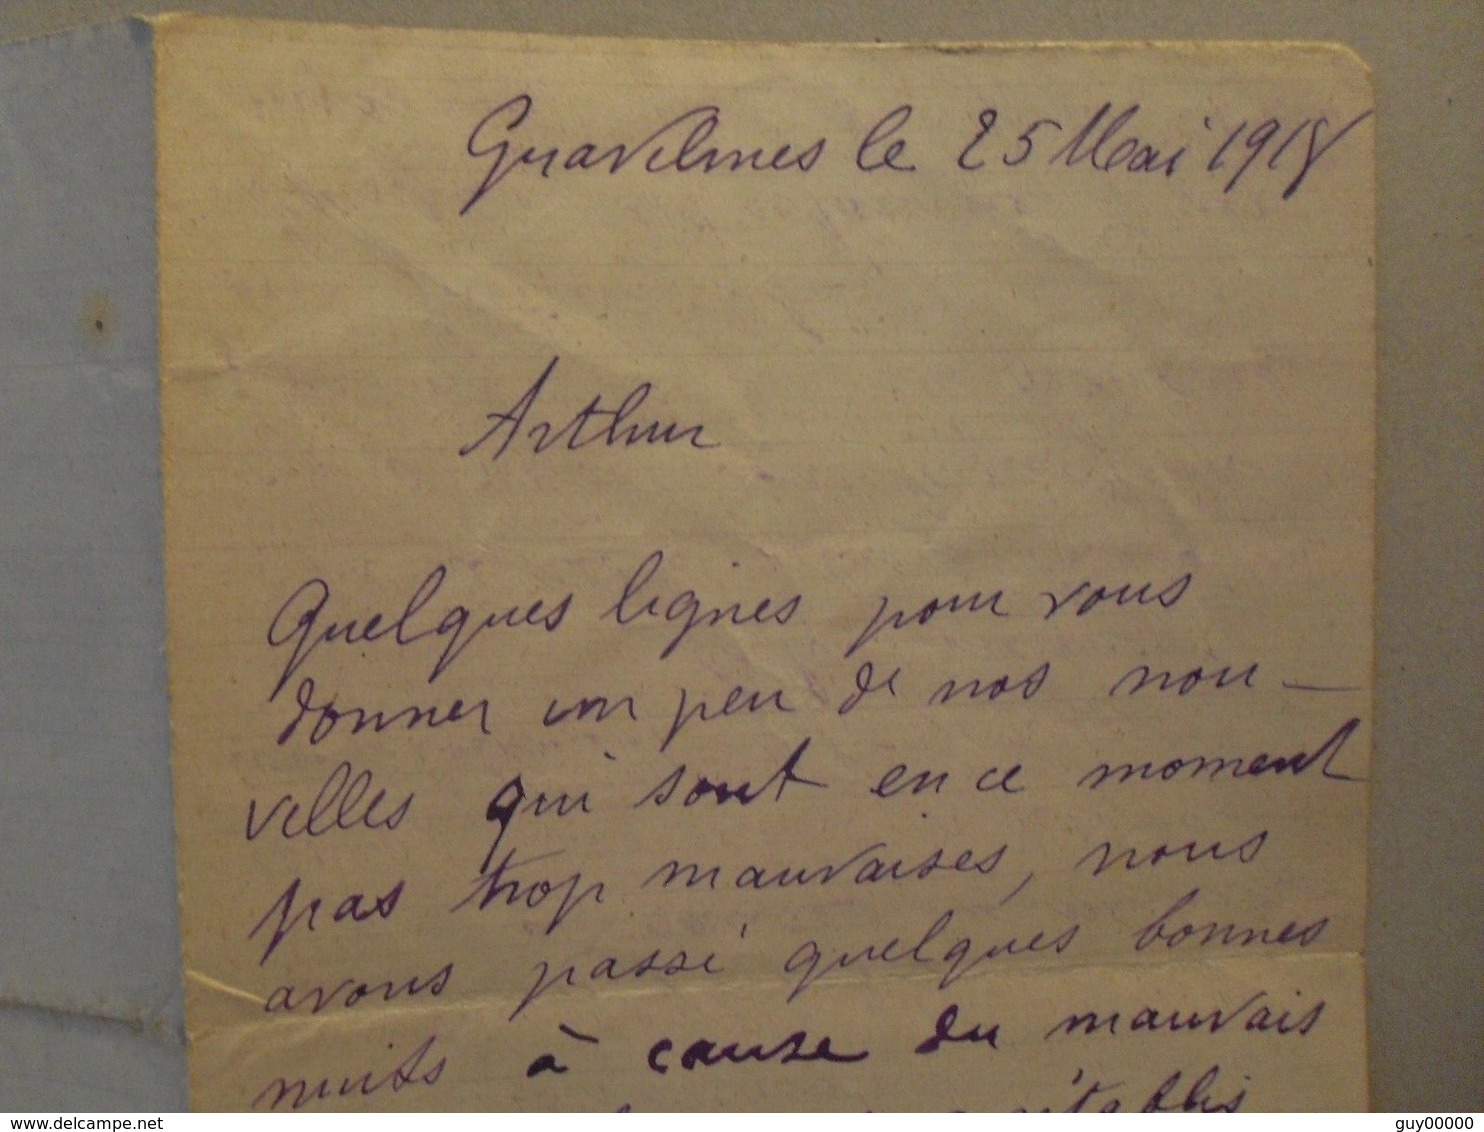 Gravelines le 25 Mai 1918
Arthur
Quelques lignes pour vous
donner un peu de nos nou-
velles qui sont en ce moment
pas trop mauvaises, nous
avons passé quelques bonnes
nuits à cause du mauvais
rétablis
delcampe.net
guy00000